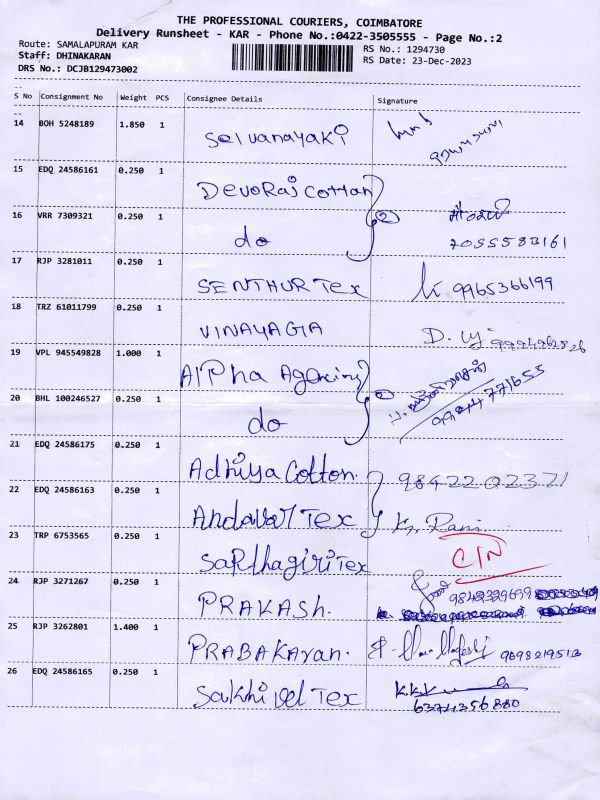 THE PROFESSIONAL COURIERS, COIMBATORE
Delivery Runsheet - KAR - Phone No.:0422-3505555 - Page No.:2
Route: SAMALAPURAM KAR RS No.: 1294730
Staff: DHINAKARAN RS Date: 23-Dec-2023
DRS No.: DCJB129473002
S No Consignment No Weight PCS Consignee Details Signature
14 BOH 5248189 1.850 1 Selvanayaki
15 EDQ 24586161 0.250 1 Devoraj Cotton
16 VRR 7309321 0.250 1 do 2 7055583161
17 RJP 3281011 0.250 1 SENTHUR Tex 9965366199
18 TRZ 61011799 0.250 1 VINAYAGA
19 VPL 945549828 1.000 1 Alpha Agencing
20 BHL 100246527 0.250 1 do 2 9984771655
21 EDQ 24586175 0.250 1 Adhiya Cotton 98422 02371
22 EDQ 24586163 0.250 1 Andavar Tex K. Rani
23 TRP 6753565 0.250 1 Sarthagiri Tex C/N
24 RJP 3271267 0.250 1 PRAKASh.
25 RJP 3262801 1.400 1 PRABAKAran. 9698219513
26 EDQ 24586165 0.250 1 Sakthivel Tex 6374356880